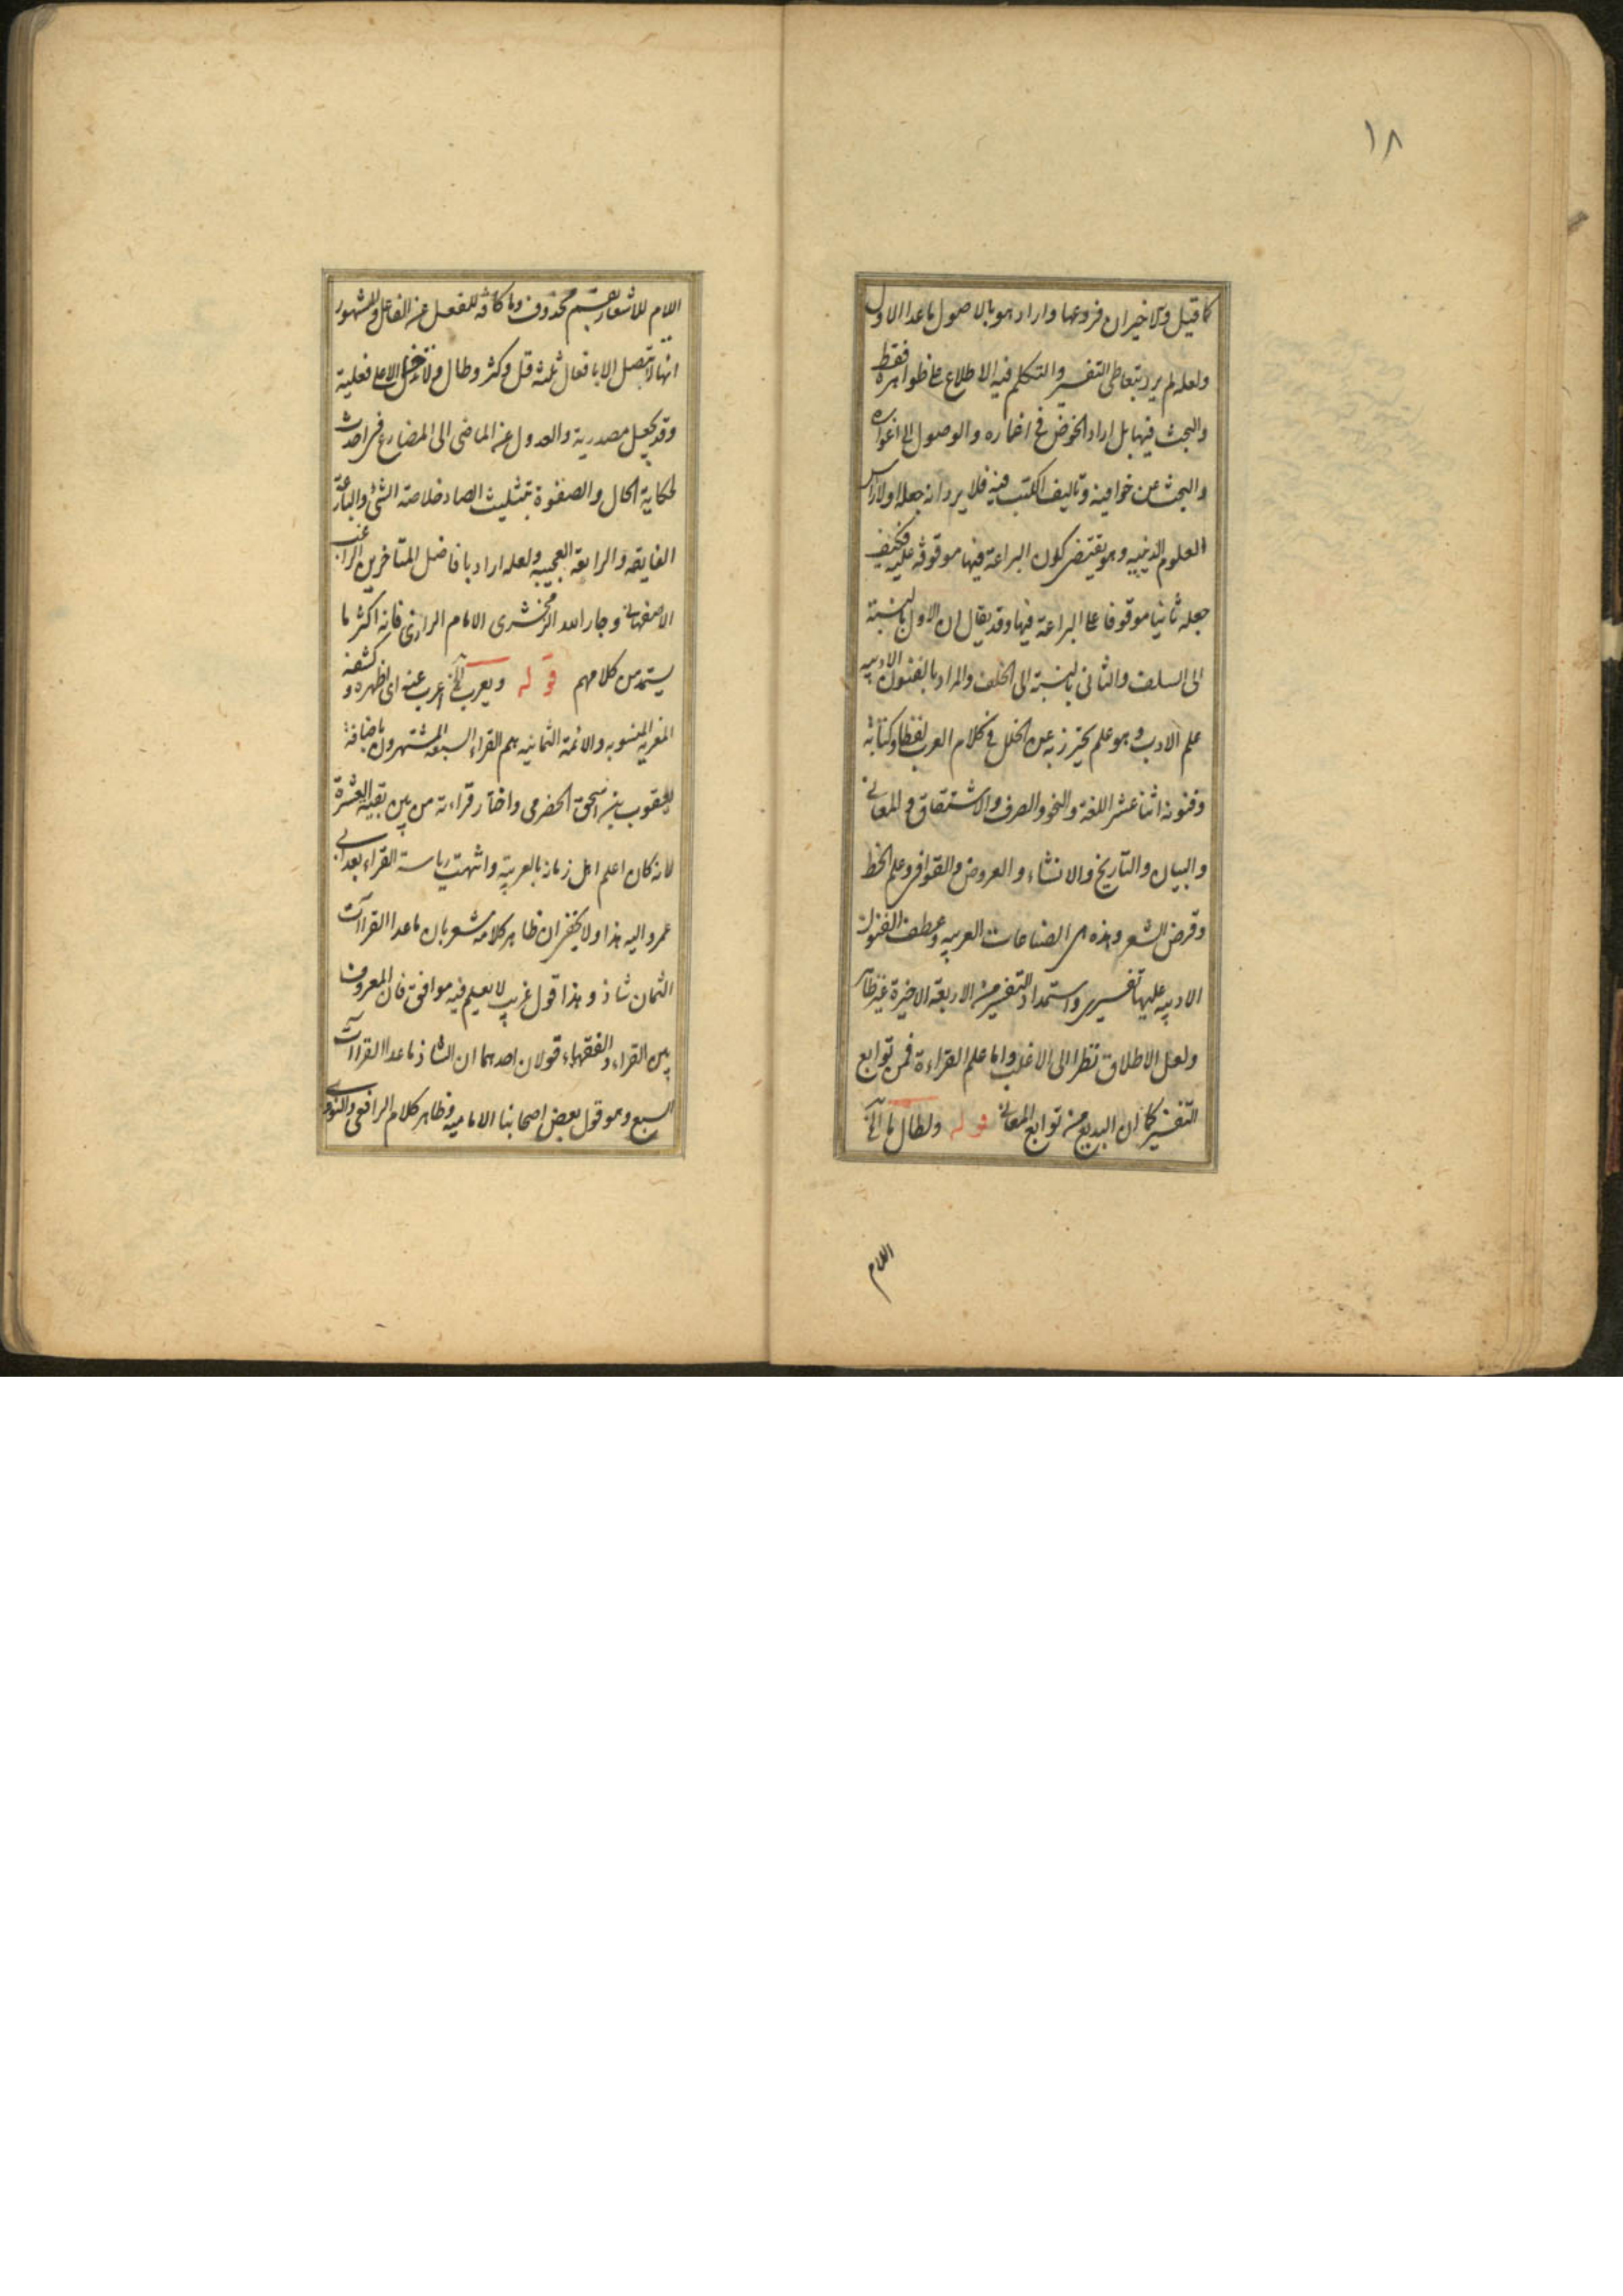 ١٨
كما قيل والاخيران فروعها واراد هو بالاصول ما عدا الاول
ولعله لم يرد بتعاطى التفسير والتكلم فيه الاطلاع على ظواهره فقط
والبحث فيها بل اراد الخوض فى اغماره والوصول الى اغواره
والبحث عن خوافيه وتاليف الكتب فيه فلا يرد انه جعله اولا راس
العلوم الدينيه وهو يقتضى كون البراعة فيها موقوفة عليه فكيف
جعله ثانيا موقوفا على البراعة فيها وقد يقال ان الاول بالنسبة
الى السلف والثانى بالنسبة الى الخلف والمراد بالفنون الادبيه
علم الادب وهو علم يحترز به عن الخلل فى كلام العرب لفظا وكتابة
وفنونه اثنا عشر اللغة والنحو والصرف والاشتقاق والمعانى
والبيان والتاريخ والانشاء والعروض والقوافى وعلم الخط
وقرض الشعر وهذه هى الصناعات العربيه وعطف الفنون
الادبيه عليها تفسيرى واستمداد التفسير من الاربعة الاخيرة غير ظاهر
ولعل الاطلاق نظرا الى الاغلب واما علم القراءة فمن توابع
التفسير كما ان البديع من توابع المعانى قوله ولطال ما الخ
اللام
اللام للاشعار بقسم محذوف وما كافة للفعل عن الفاعل والمشهور
انها لا تتصل الا بافعال ثلثة قل وكثر وطال ولا تدخل الا على فعلية
وقد يجعل مصدرية والعدول عن الماضى الى المضارع فى احدث
لحكاية الحال والصفوة بتثليث الصاد خلاصة الشئ والبارعة
الفايقه والرايعة العجيبه ولعله اراد بافاضل المتاخرين الراغب
الاصفهانى وجار الله الزمخشرى الامام الرازى فانه اكثر ما
يستمد من كلامهم قوله ويعرب الخ اعرب عنه اى اظهره وكشفه
المعزيه المنسوبه والائمة الثمانيه هم القراء السبعة المشتهرون باضافة
يعقوب بن اسحق الحضرمى واختار قراءته من بين بقية العشرة
لانه كان اعلم اهل زمانه بالعربية وانتهت رياسة القراء بعد ابى
عمرو اليه هذا ولا يخفى ان ظاهر كلامه مشعر بان ما عدا القراآت
الثمان شاذ وهذا قول غريب لا نعلم فيه موافق فان المعروف
بين القراء والفقهاء قولان احدهما ان الشاذ ما عدا القراآت
السبع وهو قول بعض اصحابنا الاماميه وظاهر كلام الرافعى والنووى